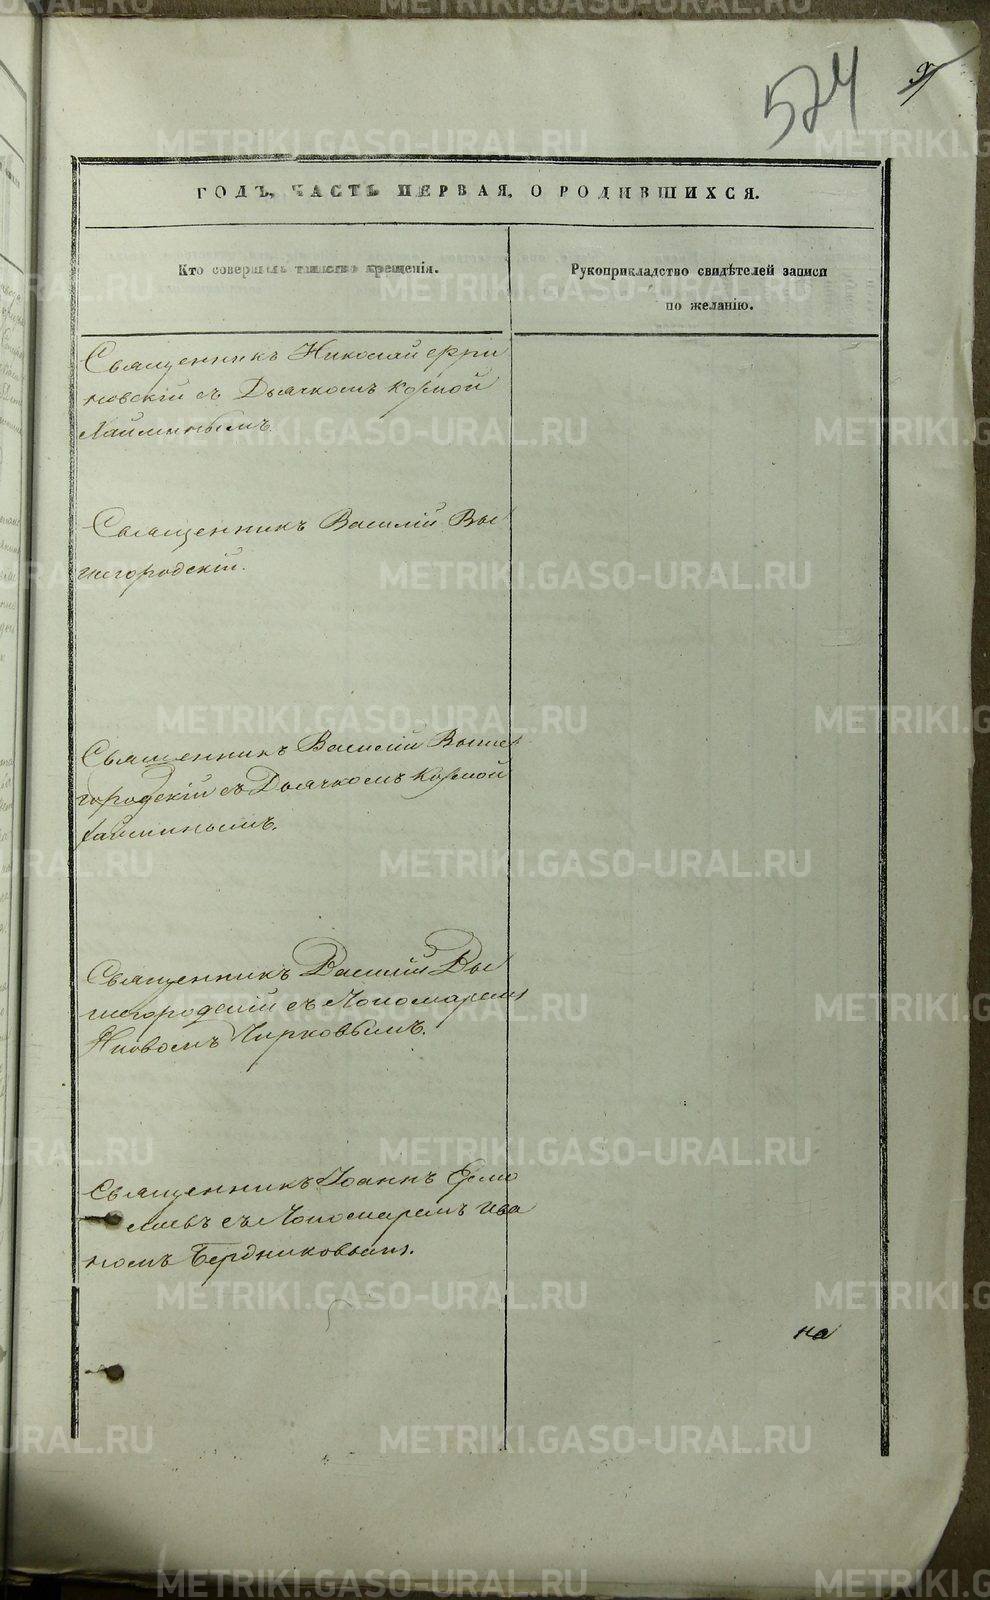 524
ГОДЪ, ЧАСТЬ ПЕРВАЯ, О РОДИВШИХСЯ.
Кто совершалъ таинство крещенія.
Рукоприкладство свидѣтелей записи
по желанію.
Священникъ Николай
новскій съ Дьячкомъ Козмой
Лайминымъ.
Священникъ Василій Вы
шгородскій.
Священникъ Василій Выше
городскій съ Дьячкомъ Козмой
Лайминымъ.
Священникъ Василій Вы
шгородскій съ Пономаремъ
Чирковымъ.
Священникъ Іоаннъ Ермо
лаевъ съ Пономаремъ Ива
номъ Бердниковымъ.
на
METRIKI.GASO-URAL.RU